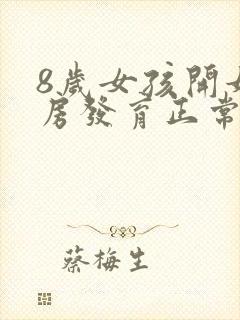 8歲女孩開
房發育正常
蔡梅生